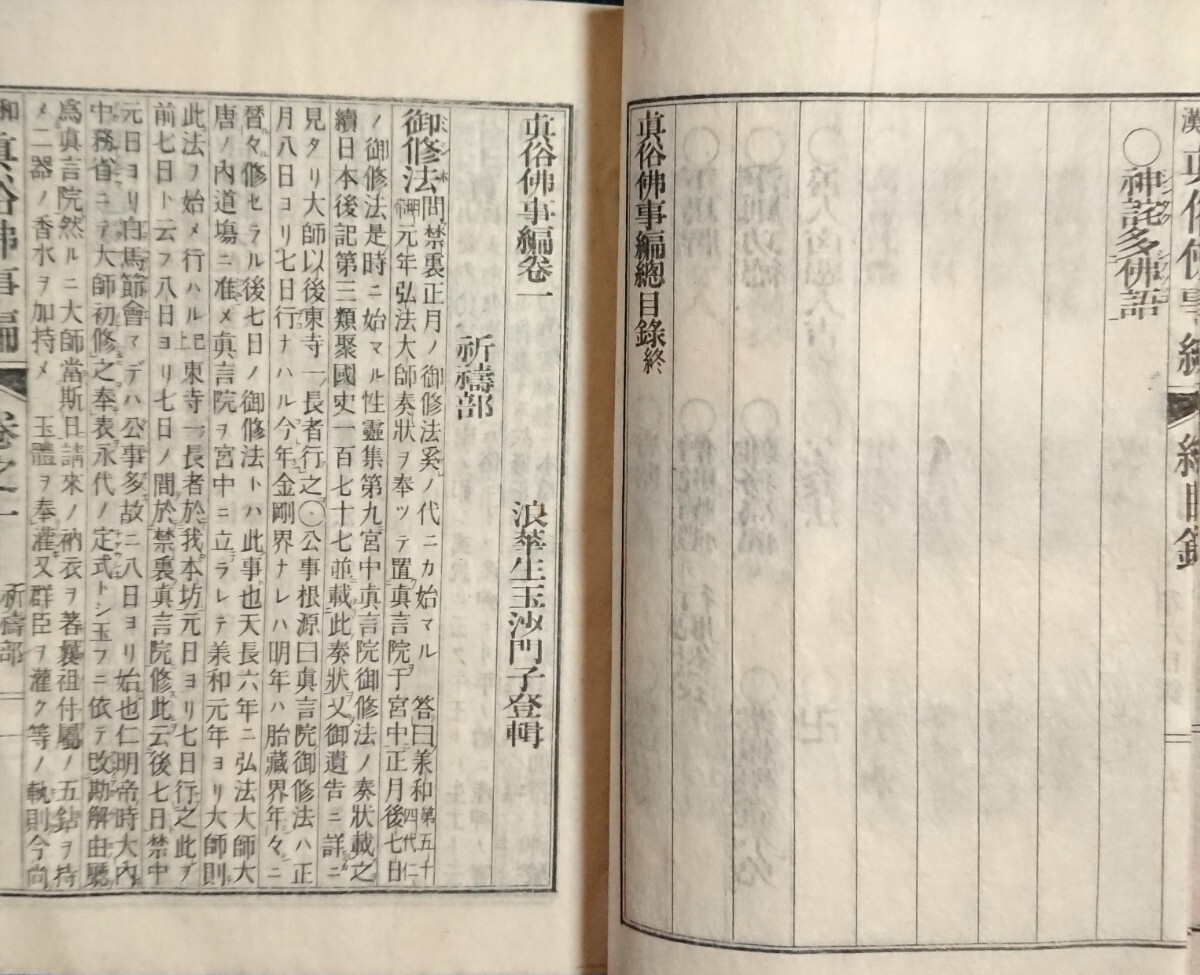 真俗佛事編 總目錄
○神詫多佛語
真俗佛事編總目錄終
真俗佛事編卷一
浪華生玉沙門子登輯
祈禱部
御修法問禁裏正月ノ御修法奚ノ代ニカ始マル 答曰美和第五十四代仁
明帝元年弘法大師奏狀ヲ奉ツテ置真言院于宮中正月後七日
ノ御修法是時ニ始マル性靈集第九宮中真言院御修法ノ奏狀載之
續日本後記第三類聚國史一百七十七並載此奏狀又御遺告ニ詳ニ
見タリ大師以後東寺一長者行之○公事根源曰真言院御修法ハ正
月八日ヨリ七日行ナハル今年金剛界ナレハ明年ハ胎藏界年々ニ
替々修セラル後七日ノ御修法トハ此事也天長六年ニ弘法大師大
唐ノ內道塲ニ准メ真言院ヲ宮中ニ立ラレテ美和元年ヨリ大師則
此法ヲ始メ行ハル上巳東寺一長者於我本坊元日ヨリ七日行之此ヲ
前七日ト云フ八日ヨリ七日ノ間於禁裏真言院修此云後七日禁中
元日ヨリ白馬節會マデハ公事多故ニ八日ヨリ始也仁明帝時大內
中務省ニテ大師初修之奉表永代ノ定式トシ玉フニ依テ改勘解由廳
爲真言院然ルニ大師當斯日請來ノ衲衣ヲ著襲祖付屬ノ五鈷ヲ持
メ二器ノ香水ヲ加持メ 玉體ヲ奉灌又群臣ヲ灌ク等ノ軌則今尚
真俗佛事編 卷之一 祈禱部 一